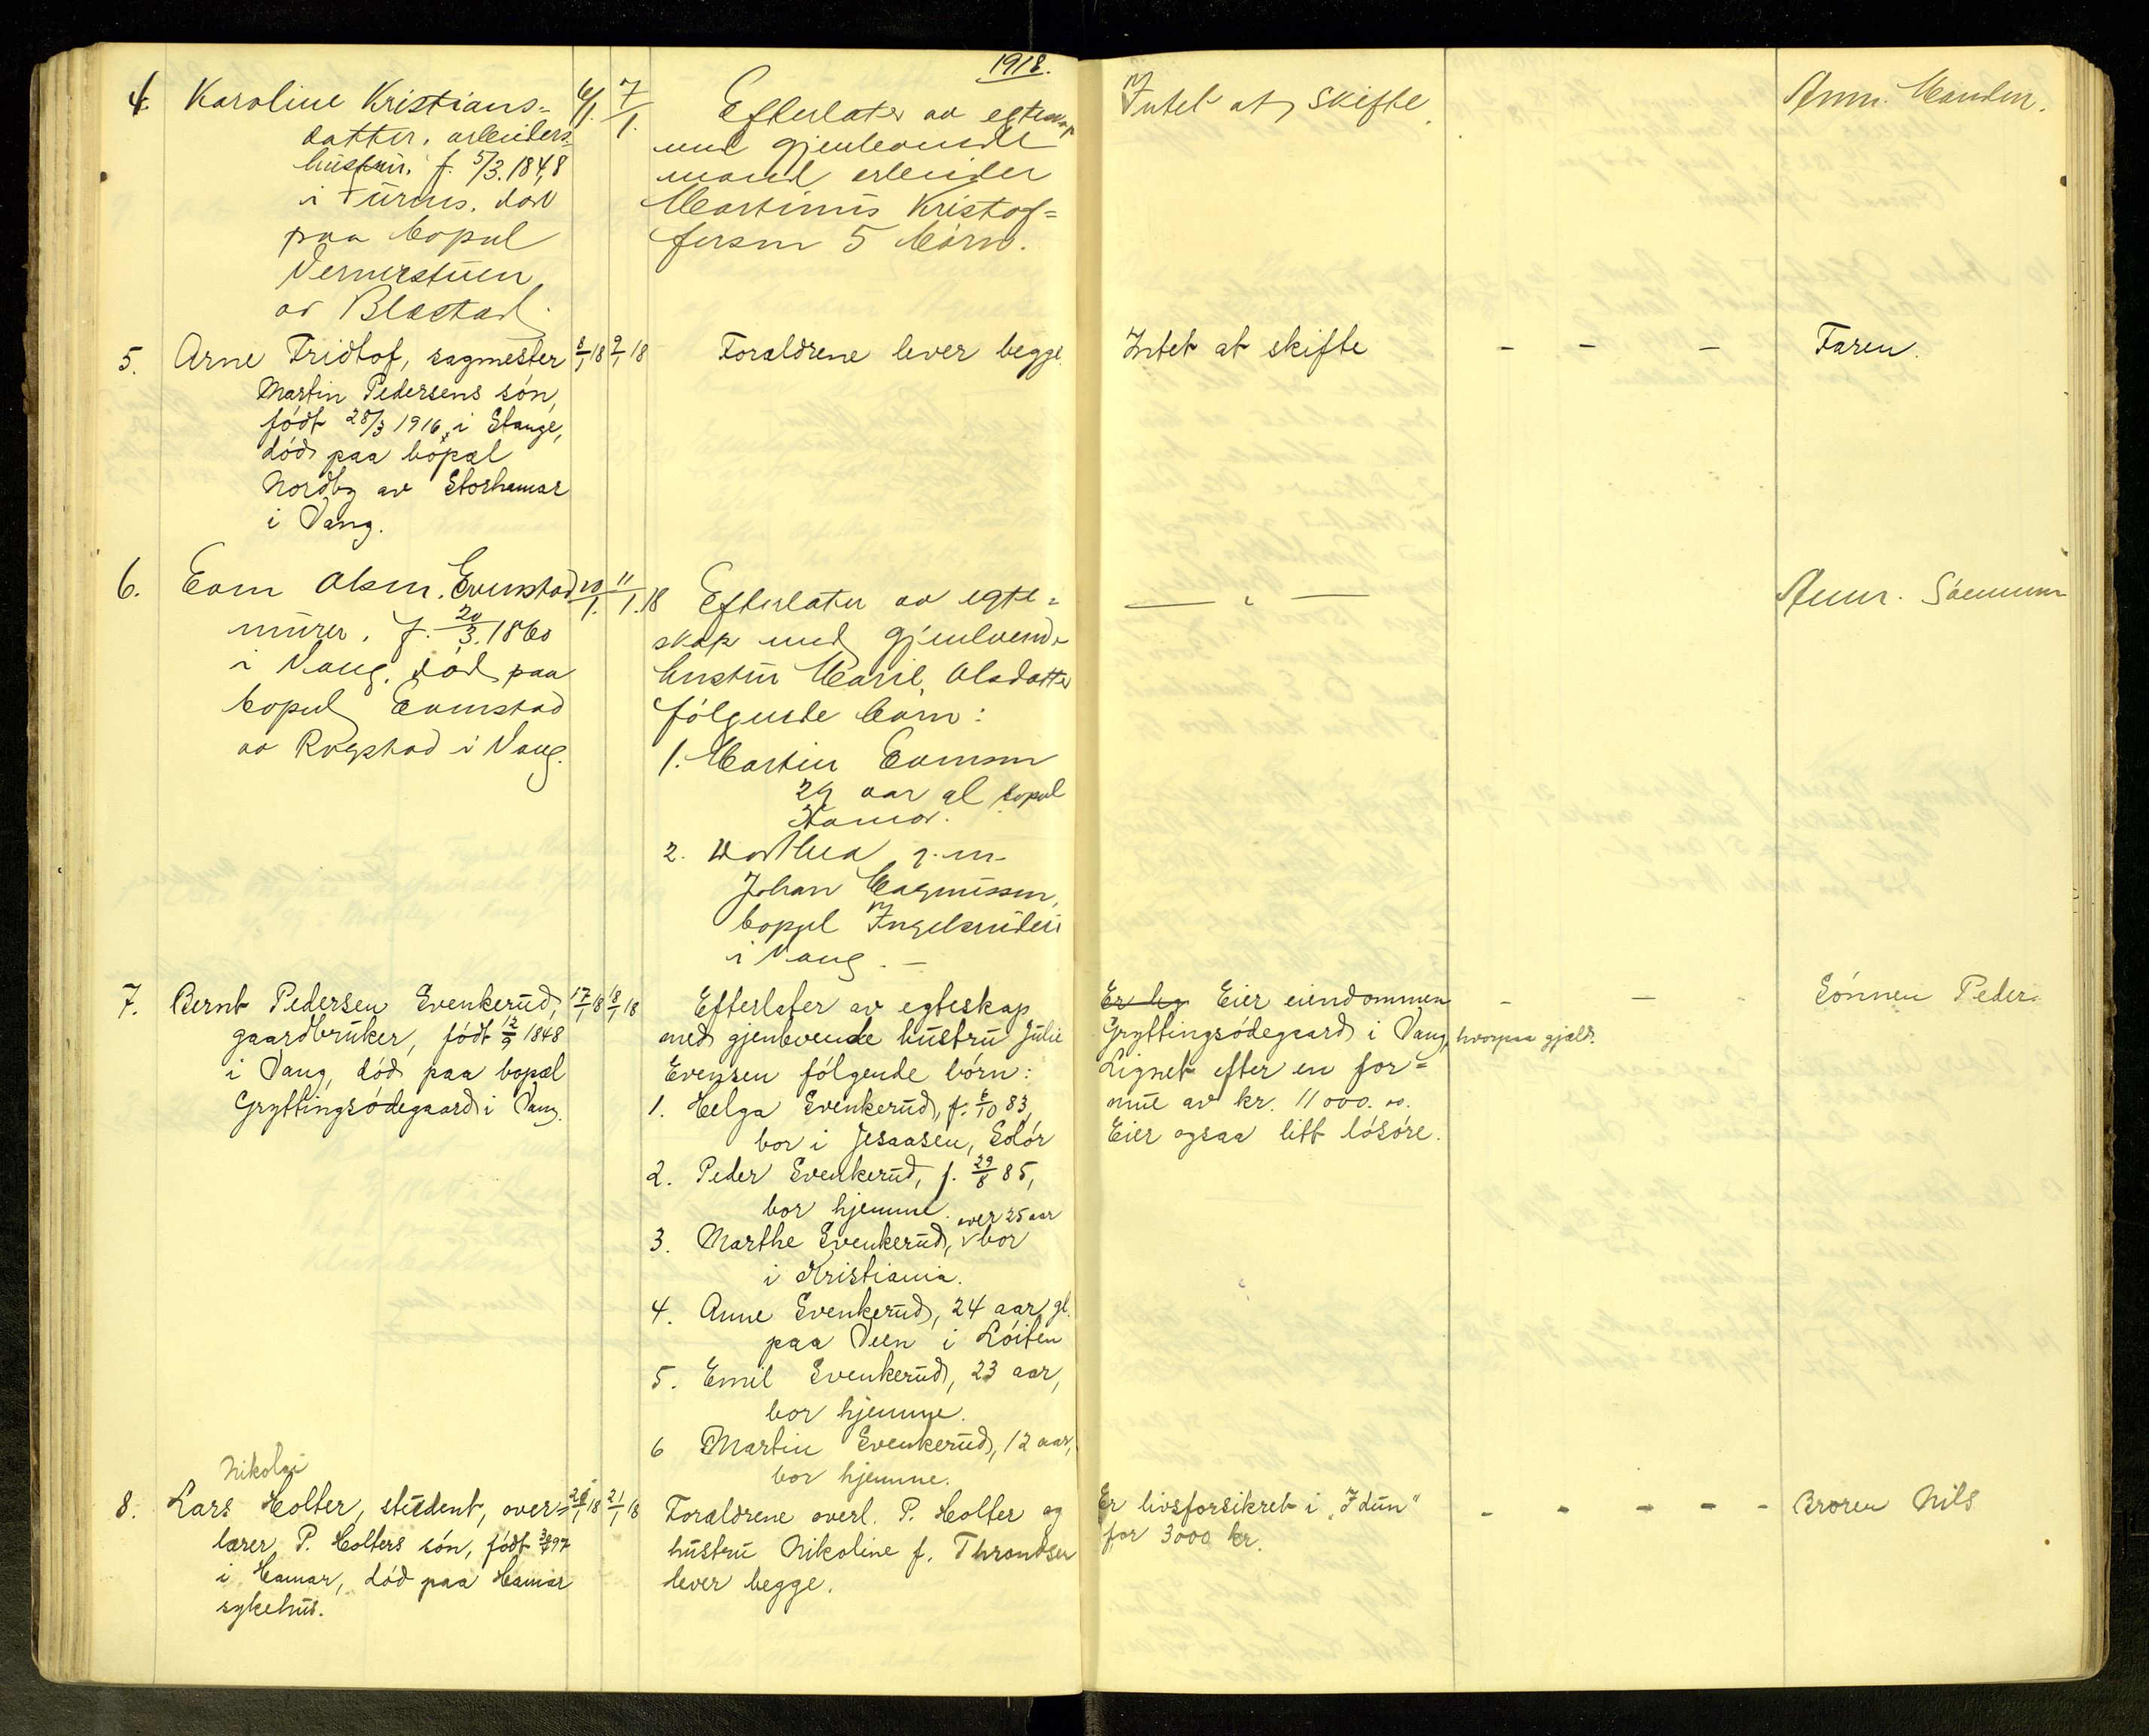 1918.
4. Karoline Kristians=
datter, arbeiders
hustru, f. 5/3. 1848
i Furnes, død
paa bopæl
Vernerstuen
av Blæstad.
6/1. 7/1.
Efterlater av egteskap
med gjenlevende
mand arbeider
Martinus Kristof=
fersen 5 børn.
Intet at skifte.
Anm. Manden.
5. Arne Fridtof, sagmester
Martin Pedersens søn,
født 28/3 1916, i Stange,
død paa bopæl
Nordby av Storhamar
i Vang.
8/1 18 9/1 18
Forældrene lever begge.
Intet at skifte
- - -
Faren.
6. Even Olsen Evenstad
murer, f. 20/3. 1860
i Vang, død paa
bopæl Evenstad
av Rogstad i Vang.
10/1. 11/1. 18
Efterlater av egte=
skap med gjenlevende
hustru Maril. Olsdatter
følgende børn:
1. Martin Evensen
29 aar gl bopæl
Hamar.
2. Dorthea g. m.
Johan Magnussen,
bopæl Ingelsrudeie
i Vang. —
— " —
Anm. Sønnen
7. Bernt Pedersen Evenkerud,
gaardbruker, født 12/9 1848
i Vang, død paa bopæl
Gryttingsødegaard i Vang.
17/1 18 18/1 18
Efterlater av egteskap
med gjenlevende hustru Julie
Evensen følgende børn:
1. Helga Evenkerud, f. 6/10 83,
bor i Jesaasen, Solør
2. Peder Evenkerud, f. 29/8 85,
bor hjemme.
over 25 aar
3. Marthe Evenkerud, v bor
i Kristiania.
4. Anne Evenkerud, 24 aar gl.
paa Veen i Løiten
5. Emil Evenkerud, 23 aar,
bor hjemme.
6 Martin Evenkerud, 12 aar,
bor hjemme.
Er lig Eier eiendommen
Gryttingsødegaard i Vang, hvorpaa gjæld.
Lignet efter en for=
mue av kr. 11 000.00.
Eier ogsaa litt løsøre.
- — -
Sønnen Peder.
Nikolai
8. Lars Holter, student, over=
lærer P. Holters søn, født 97
i Hamar, død paa Hamar
sykehus.
20/1 18 21/1 18
Forældrene overl. P. Holter og
hustru Nikoline f. Throndsen
lever begge.
Er livsforsikret i „Idun"
for 3000 kr.
- - - - -
Broren Nils